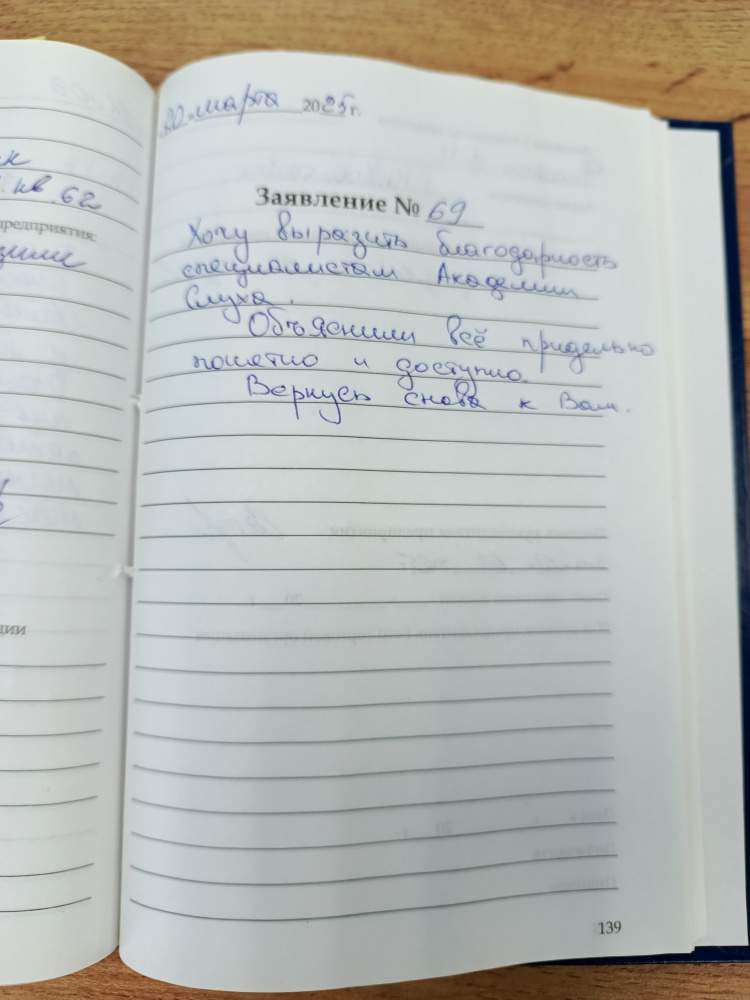 20 марта 2025 г.
Заявление № 69
Хочу выразить благодарность
специалистам Академии
Слуха.
Объяснили всё придельно
понятно и доступно.
Вернусь снова к Вам.
139
кв 62
предприятия: